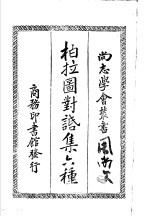 尚志學會叢書
柏拉圖對話集六種
商務印書館發行